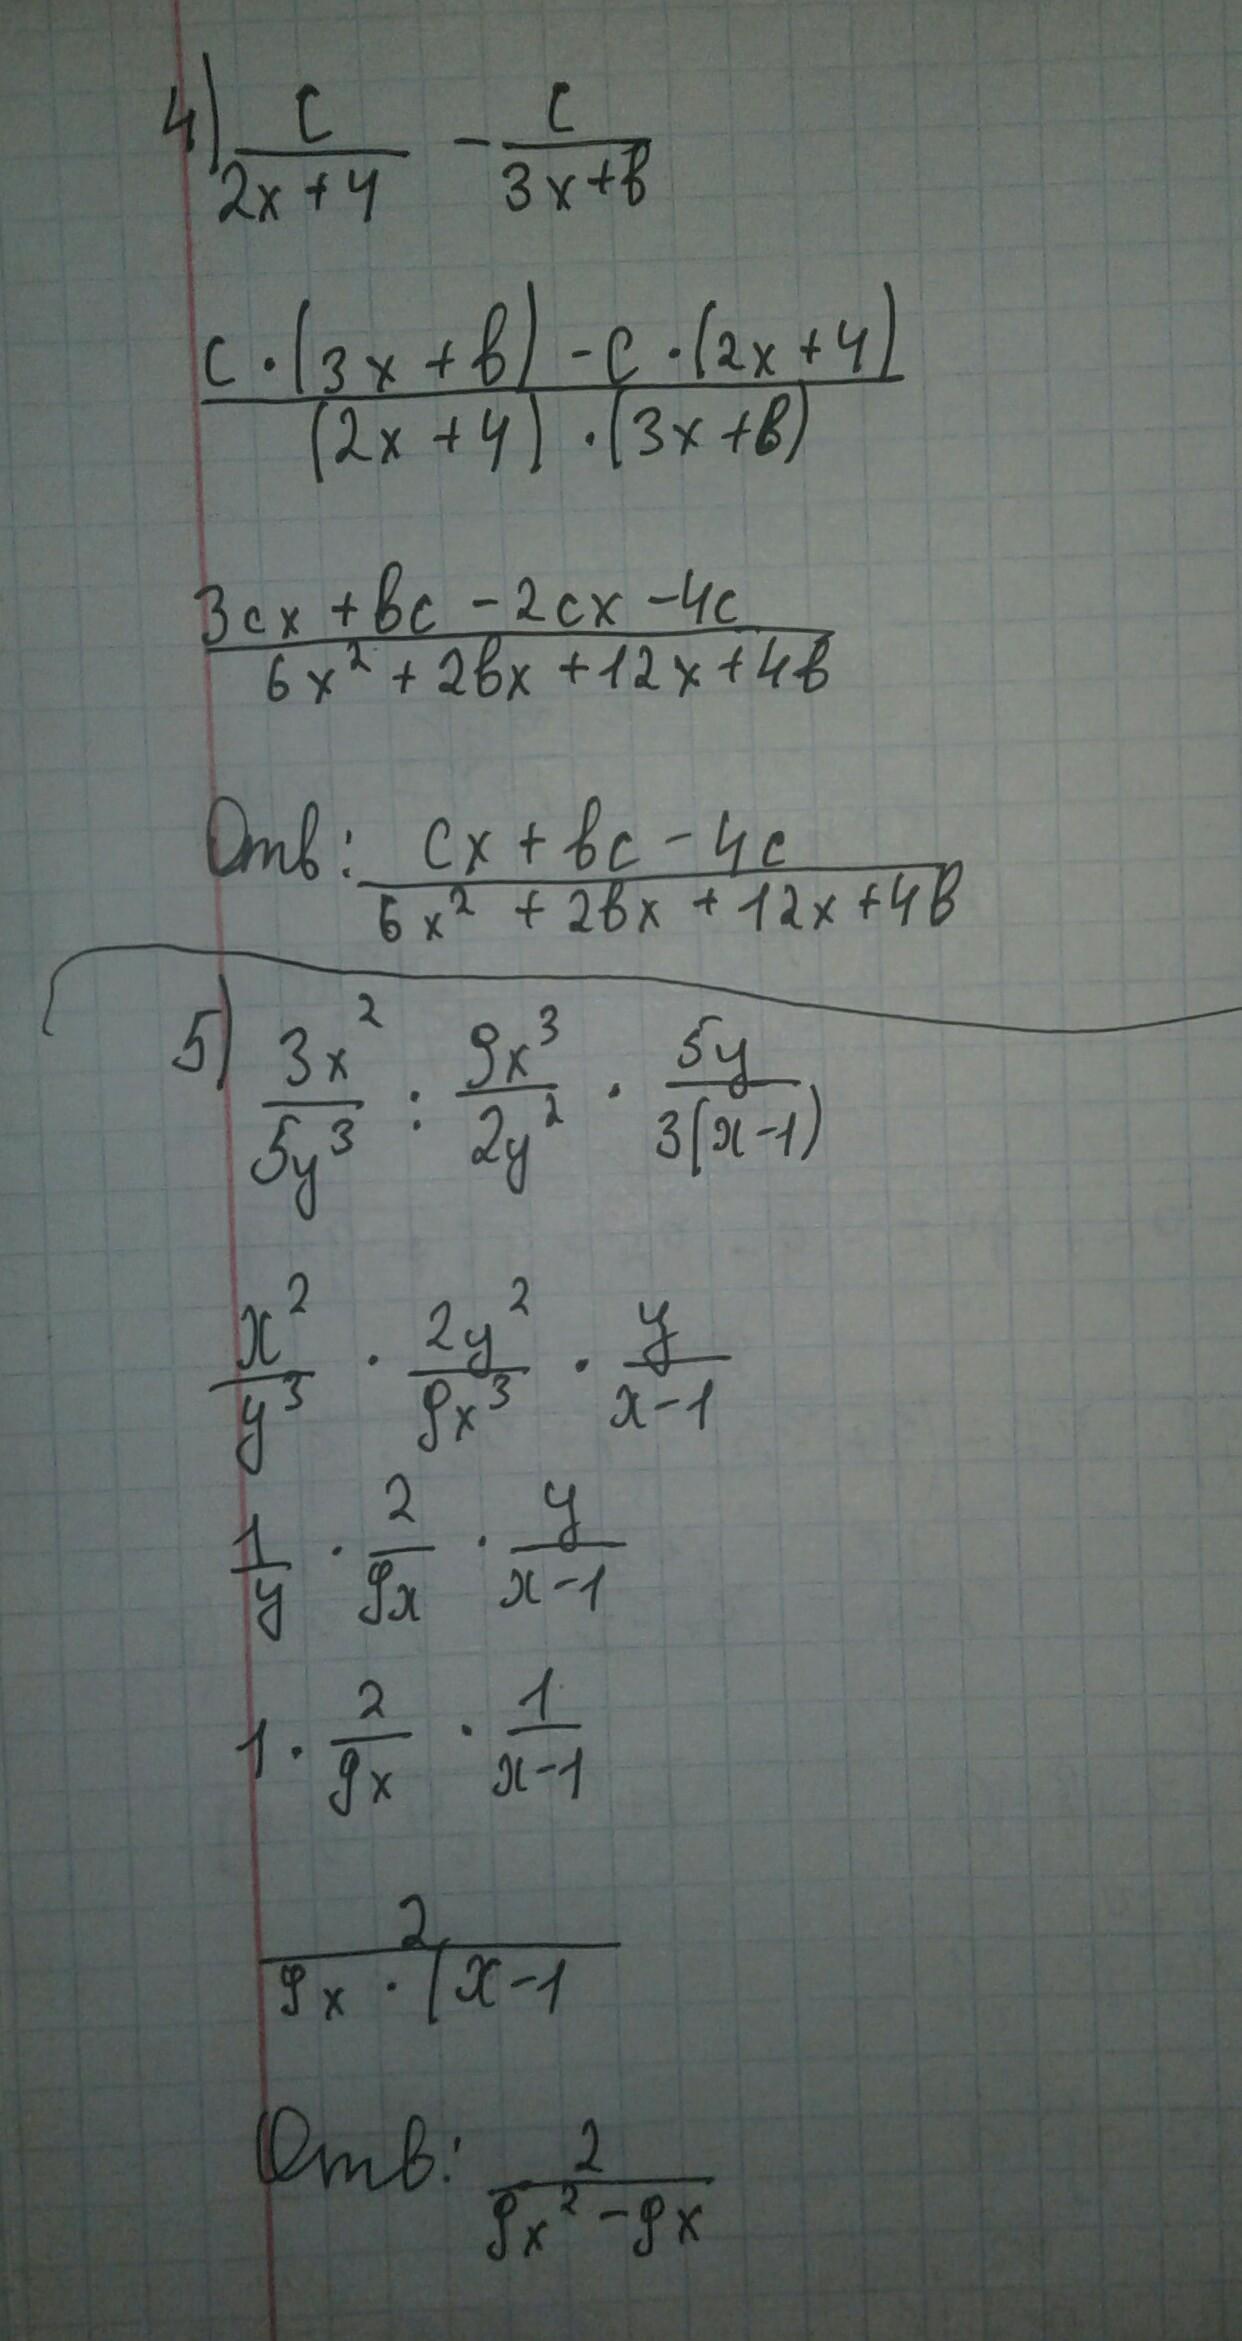 4) c/(2x+4) - c/(3x+в)
(c·(3x+в)-c·(2x+4))/((2x+4)·(3x+в))
(3cx+вc-2cx-4c)/(6x²+2вx+12x+4в)
Отв: (cx+вc-4c)/(6x²+2вx+12x+4в)
5) 3x²/5y³ : 9x³/2y² · 5y/3(x-1)
x²/y³ · 2y²/9x³ · y/(x-1)
1/y · 2/9x · y/(x-1)
1 · 2/9x · 1/(x-1)
2/(9x·(x-1
Отв: 2/(9x²-9x)